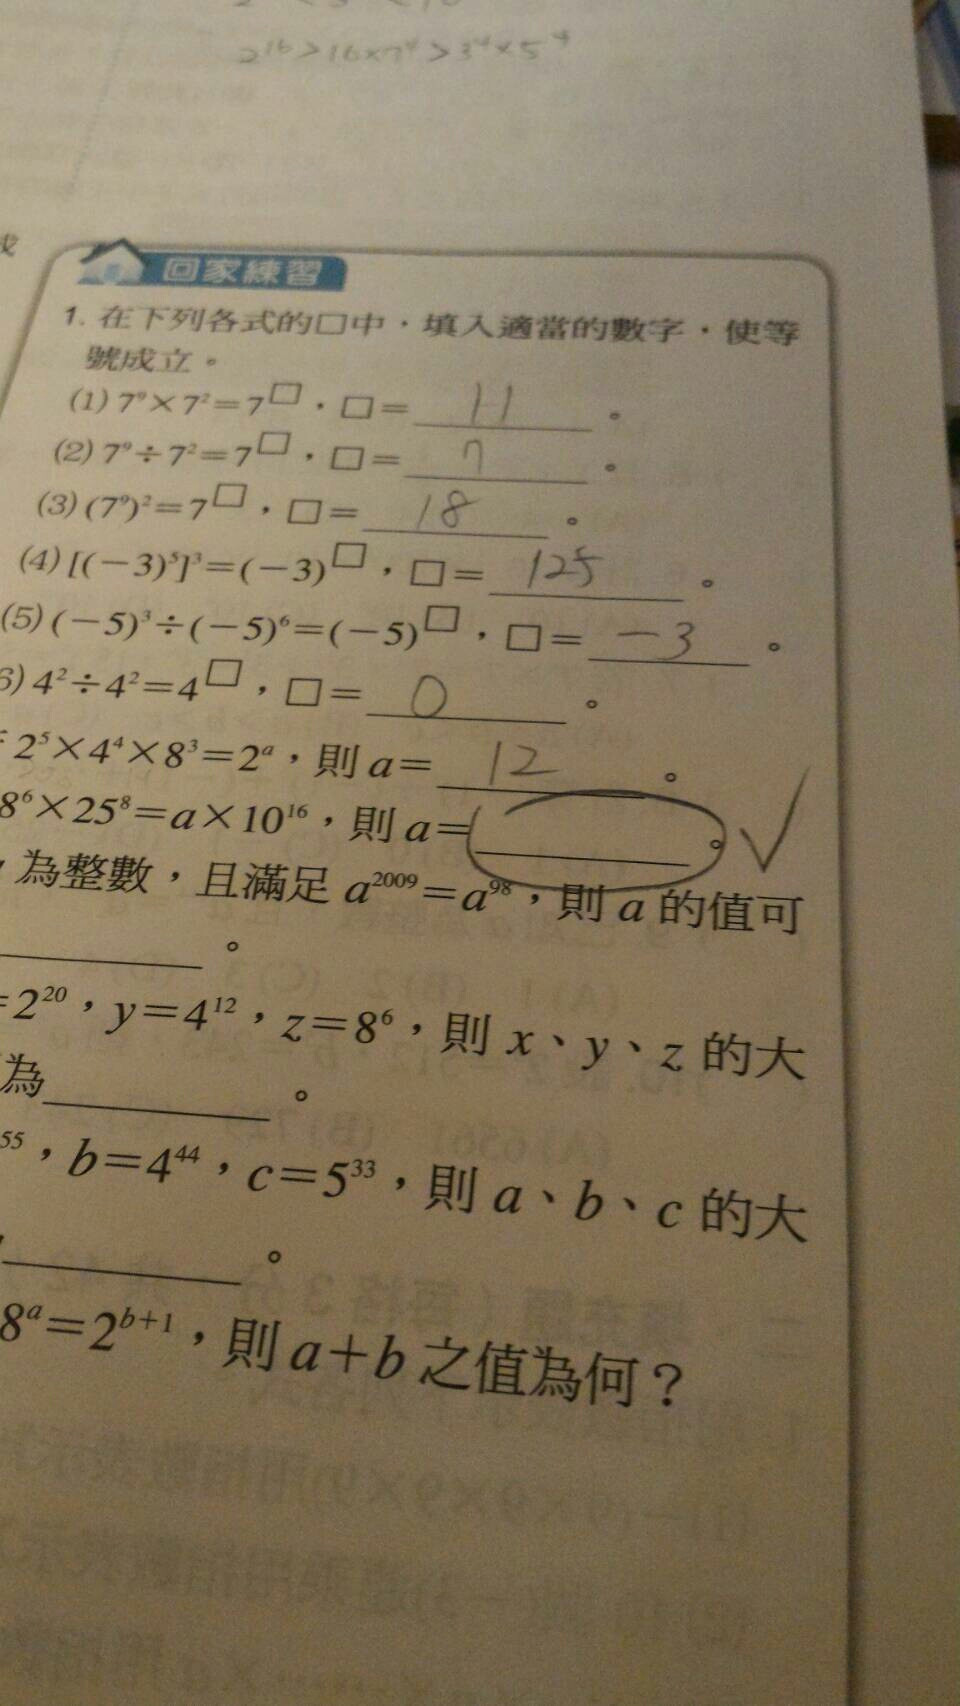 2¹⁶>16×7⁴>3⁴×5⁴
回家練習
1. 在下列各式的□中,填入適當的數字,使等
號成立。
(1) 7⁹×7²=7^□,□= 11 。
(2) 7⁹÷7²=7^□,□= 7 。
(3) (7⁹)²=7^□,□= 18 。
(4) [(−3)⁵]³=(−3)^□,□= 125 。
(5) (−5)³÷(−5)⁶=(−5)^□,□= −3 。
6) 4²÷4²=4^□,□= 0 。
2⁵×4⁴×8³=2ᵃ,則 a= 12 。
8⁶×25⁸=a×10¹⁶,則 a= 。
為整數,且滿足 a²⁰⁰⁹=a⁹⁸,則 a 的值可
。
=2²⁰,y=4¹²,z=8⁶,則 x、y、z 的大
為 。
⁵⁵,b=4⁴⁴,c=5³³,則 a、b、c 的大
。
8ᵃ=2ᵇ⁺¹,則 a+b 之值為何?